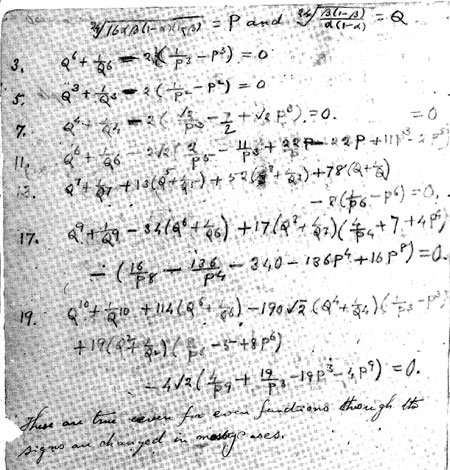 ∜16αβ(1-α)(1-β) = P and ∜β(1-β)/α(1-α) = Q
3. Q⁶ + 1/Q⁶ - 2(1/P³ - P³) = 0
5. Q³ + 1/Q³ - 2(1/P² - P²) = 0
7. Q⁴ + 1/Q⁴ - 2(√2/P³ - 7/2 + √2 P³) = 0. = 0
11. Q⁶ + 1/Q⁶ - 2√2(2/P⁵ - 11/P³ + 22/P - 22P + 11P³ - 2P⁵)
13. Q⁷ + 1/Q⁷ + 13(Q⁵ + 1/Q⁵) + 52(Q³ + 1/Q³) + 78(Q + 1/Q)
- 8(1/P⁶ - P⁶) = 0.
17. Q⁹ + 1/Q⁹ - 34(Q⁶ + 1/Q⁶) + 17(Q³ + 1/Q³)(4/P⁴ + 7 + 4P⁴)
- (16/P⁸ - 136/P⁴ - 340 - 136P⁴ + 16P⁸) = 0.
19. Q¹⁰ + 1/Q¹⁰ + 114(Q⁶ + 1/Q⁶) - 190√2(Q⁴ + 1/Q⁴)(1/P³ - P³)
+ 19(Q² + 1/Q²)(8/P⁶ - 5 + 8P⁶)
- 4√2(4/P⁹ + 19/P³ - 19P³ - 4P⁹) = 0.
These are true even for even functions though the
signs are changed in cases.